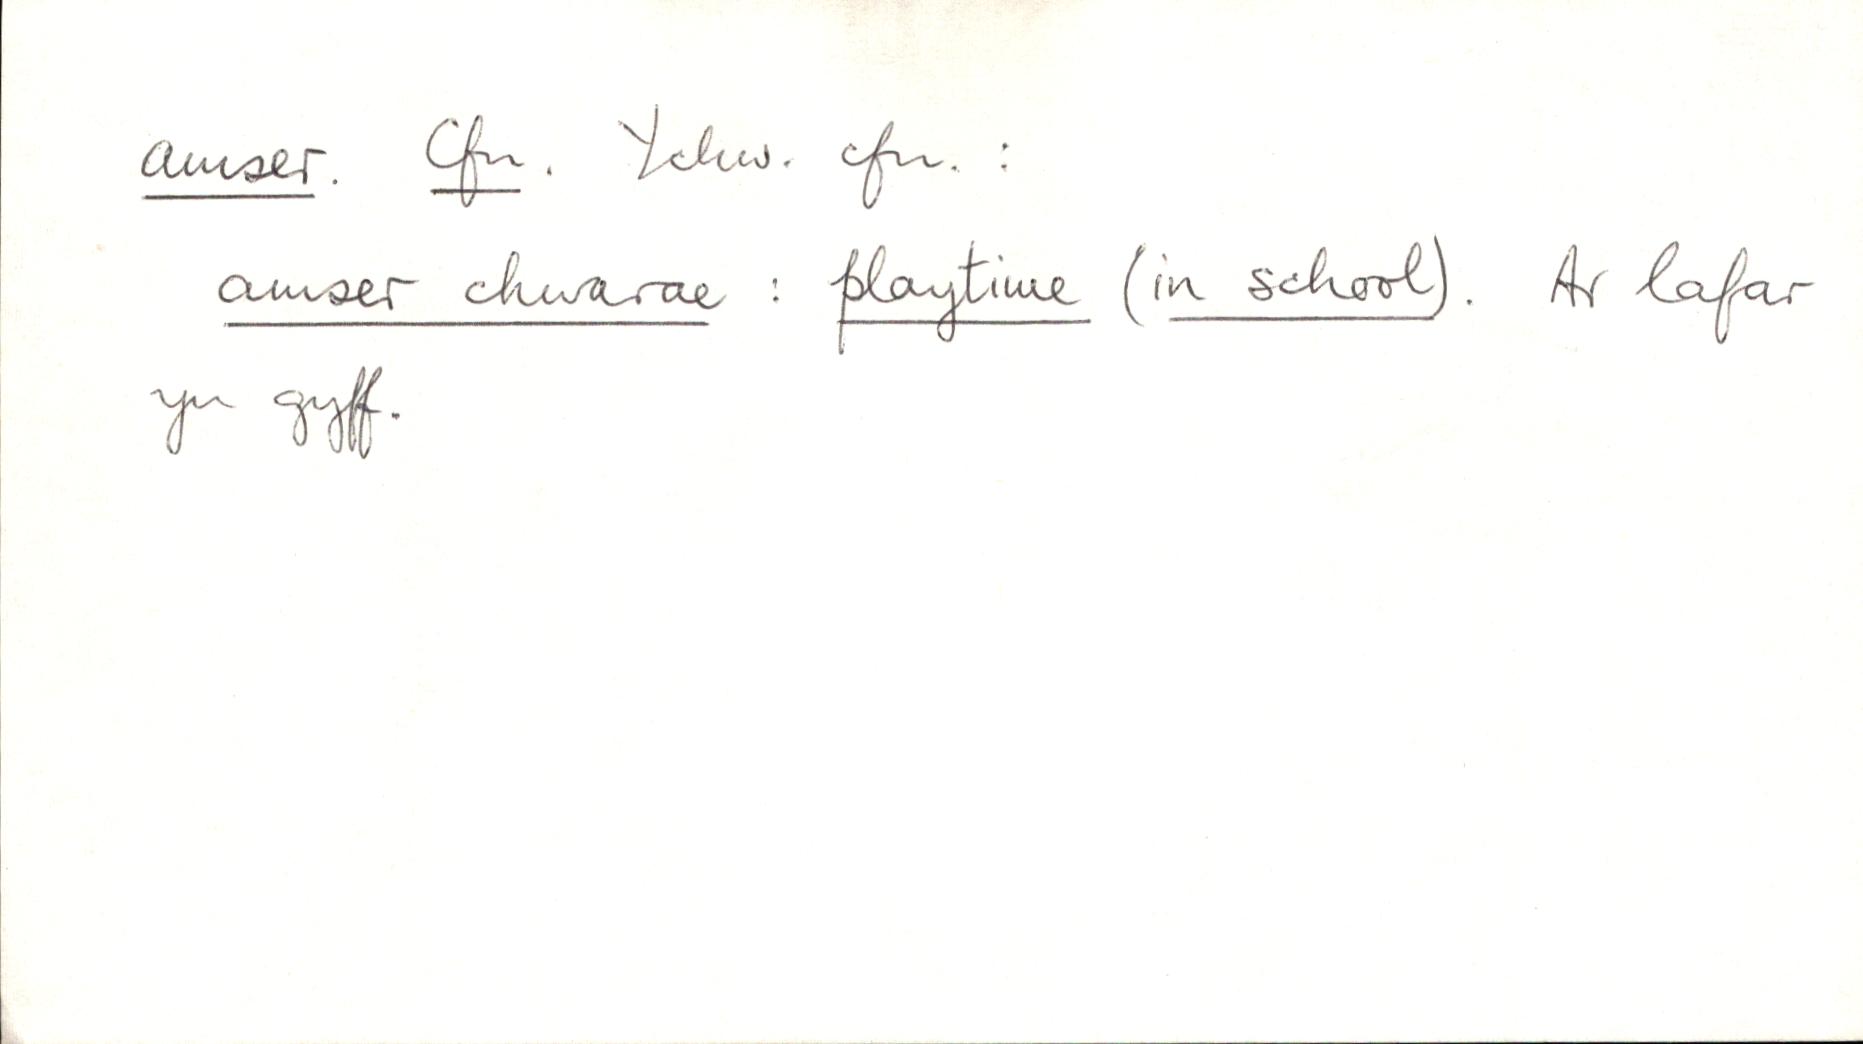 amser. Cfn. Ychw. cfn. :
amser chwarae : playtime (in school). Ar lafar
yn gyff.